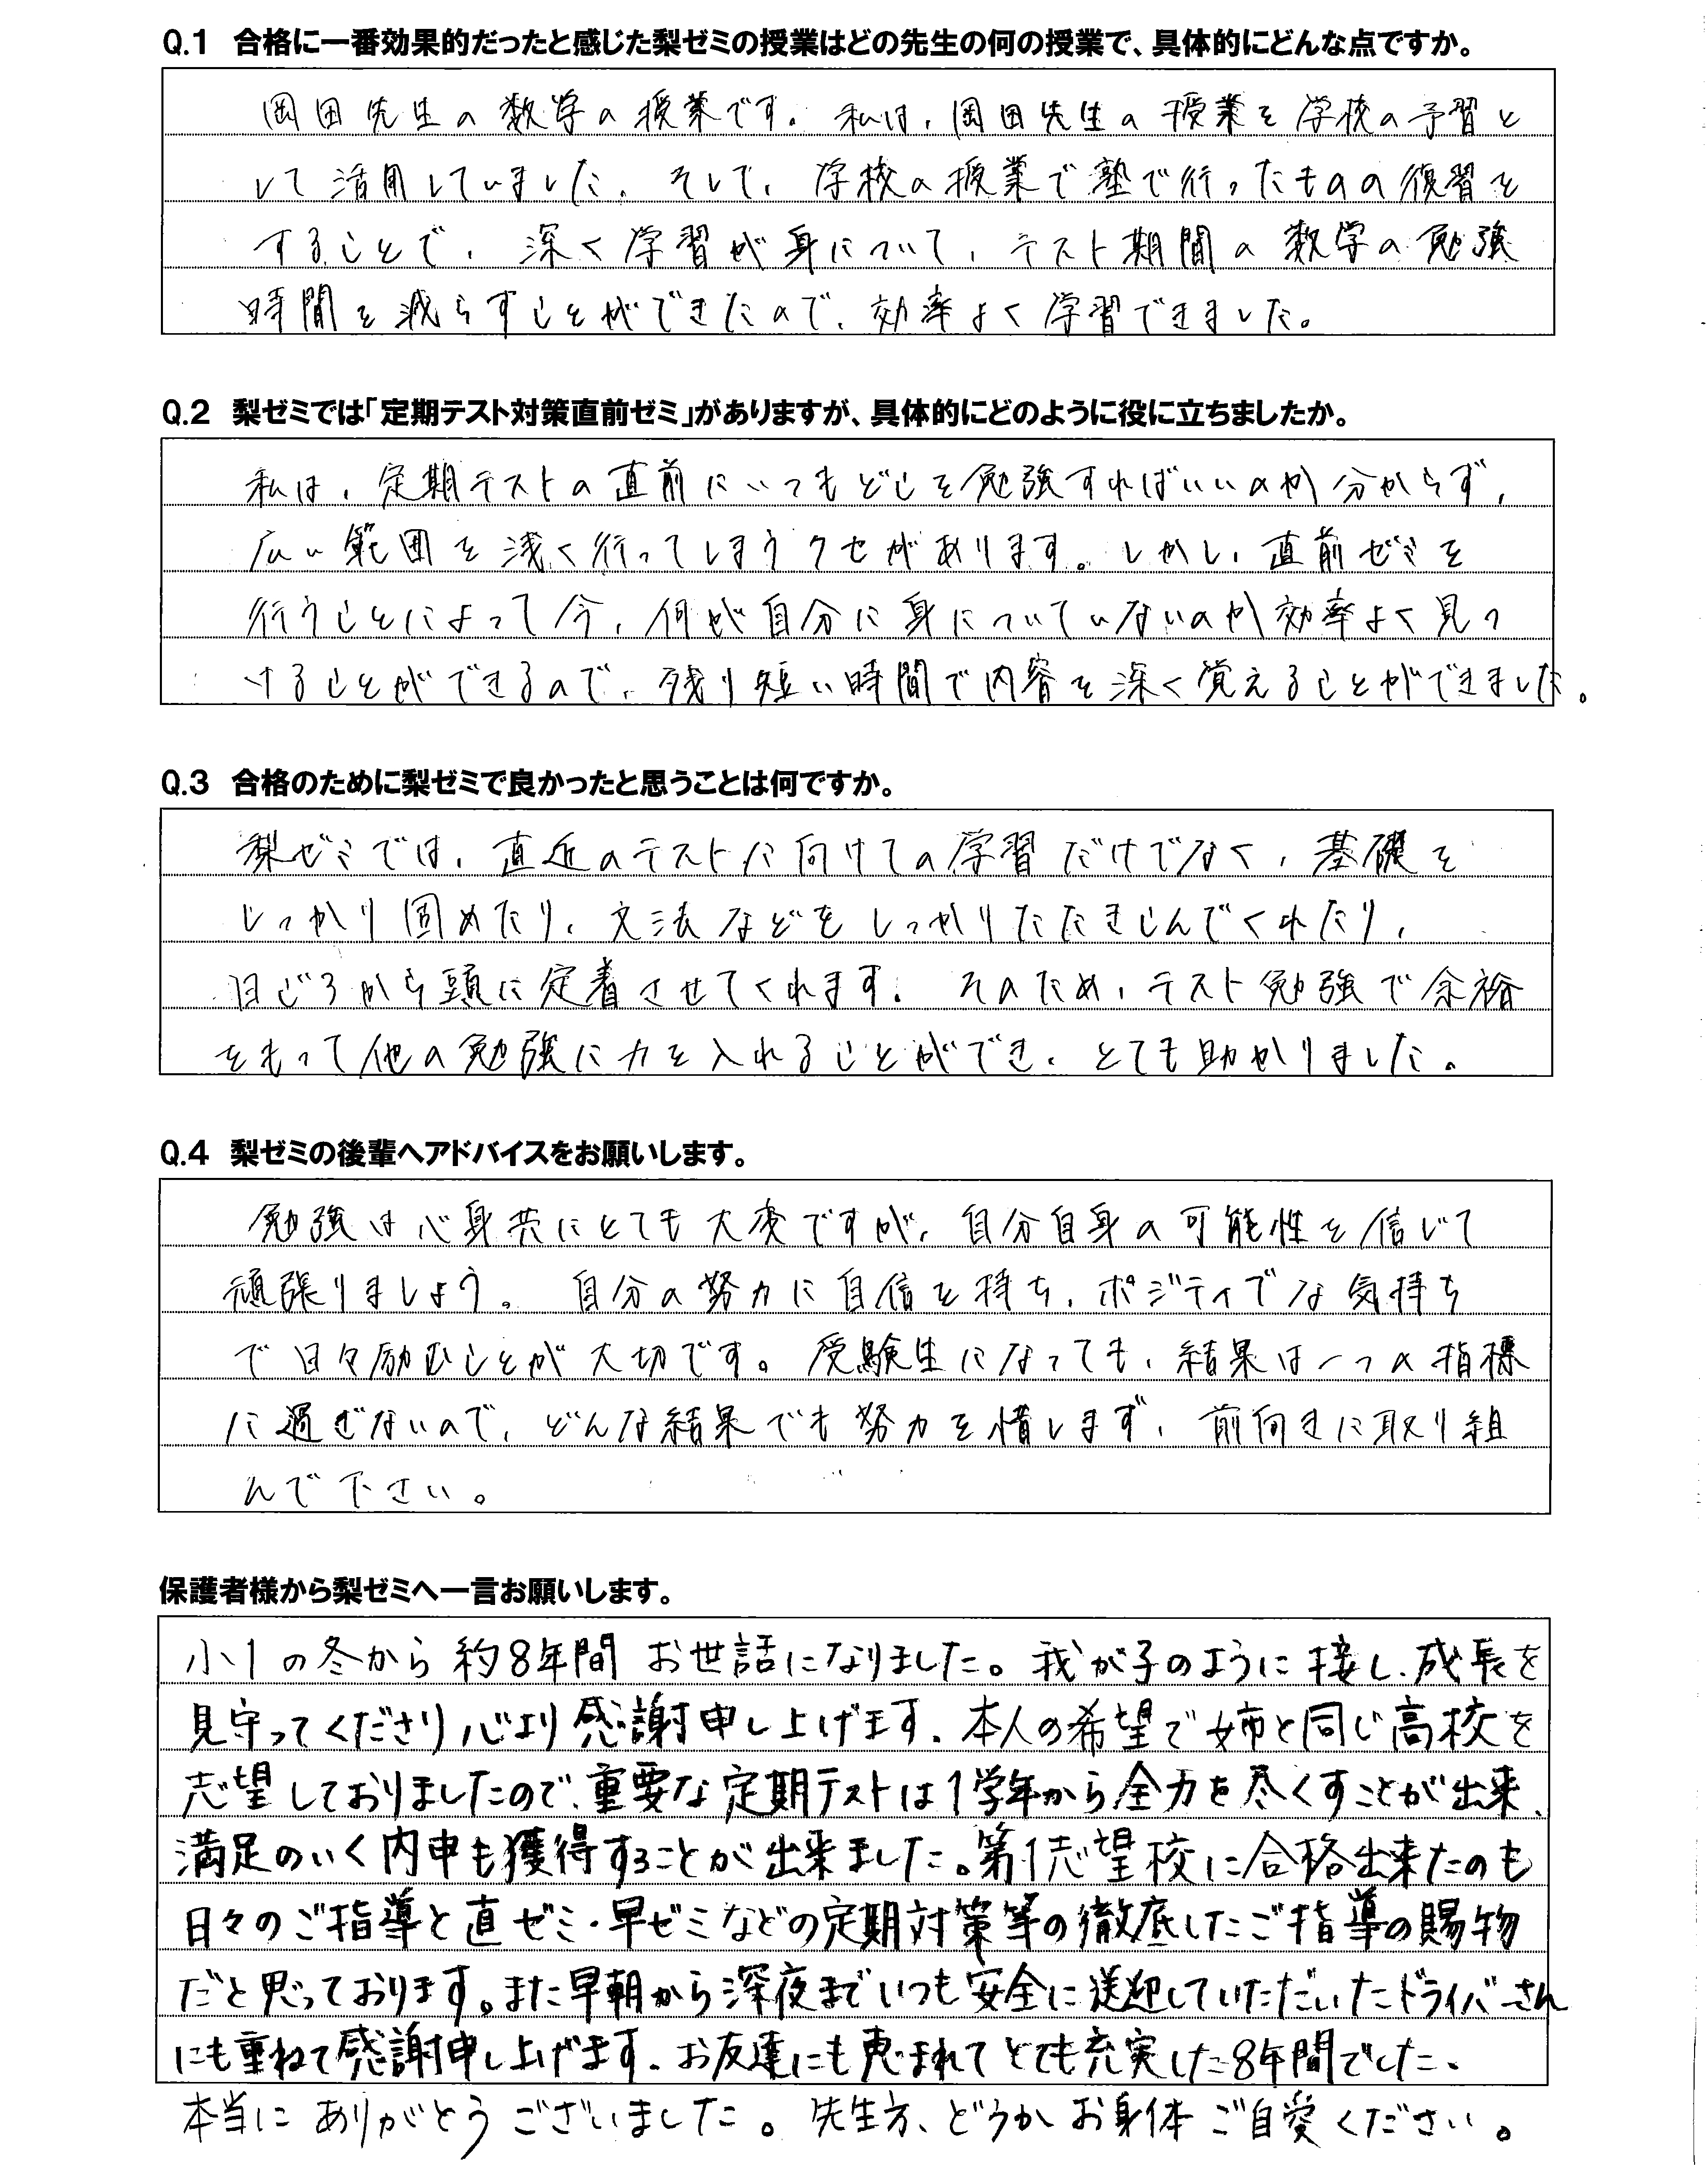 Q.1 合格に一番効果的だったと感じた梨ゼミの授業はどの先生の何の授業で、具体的にどんな点ですか。
岡田先生の数学の授業です。私は、岡田先生の授業を学校の予習と
して活用していました。そして、学校の授業で塾で行ったものの復習を
することで、深く学習が身について、テスト期間の数学の勉強
時間を減らすことができたので、効率よく学習できました。
Q.2 梨ゼミでは「定期テスト対策直前ゼミ」がありますが、具体的にどのように役に立ちましたか。
私は、定期テストの直前にいつもどこを勉強すればいいのか分からず、
広い範囲を浅く行ってしまうクセがあります。しかし、直前ゼミを
行うことによって今、何が自分に身についていないのか効率よく見つ
けることができるので、残り短い時間で内容を深く覚えることができました。
Q.3 合格のために梨ゼミで良かったと思うことは何ですか。
梨ゼミでは、直近のテストに向けての学習だけでなく、基礎を
しっかり固めたり、文法などをしっかりたたきこんでくれたり、
日ごろから頭に定着させてくれます。そのため、テスト勉強で余裕
をもって他の勉強に力を入れることができ、とても助かりました。
Q.4 梨ゼミの後輩へアドバイスをお願いします。
勉強は心身共にとても大変ですが、自分自身の可能性を信じて
頑張りましょう。自分の努力に自信を持ち、ポジティブな気持ち
で日々励むことが大切です。受験生になっても、結果は一つの指標
に過ぎないので、どんな結果でも努力を惜しまず、前向きに取り組
んで下さい。
保護者様から梨ゼミへ一言お願いします。
小1の冬から約8年間お世話になりました。我が子のように接し、成長を
見守ってくださり心より感謝申し上げます。本人の希望で姉と同じ高校を
志望しておりましたので、重要な定期テストは1学年から全力を尽くすことが出来、
満足のいく内申も獲得することが出来ました。第1志望校に合格出来たのも
日々のご指導と直ゼミ・早ゼミなどの定期対策等の徹底したご指導の賜物
だと思っております。また早朝から深夜までいつも安全に送迎していただいたドライバーさん
にも重ねて感謝申し上げます。お友達にも恵まれてとても充実した8年間でした。
本当にありがとうございました。先生方、どうかお身体ご自愛ください。